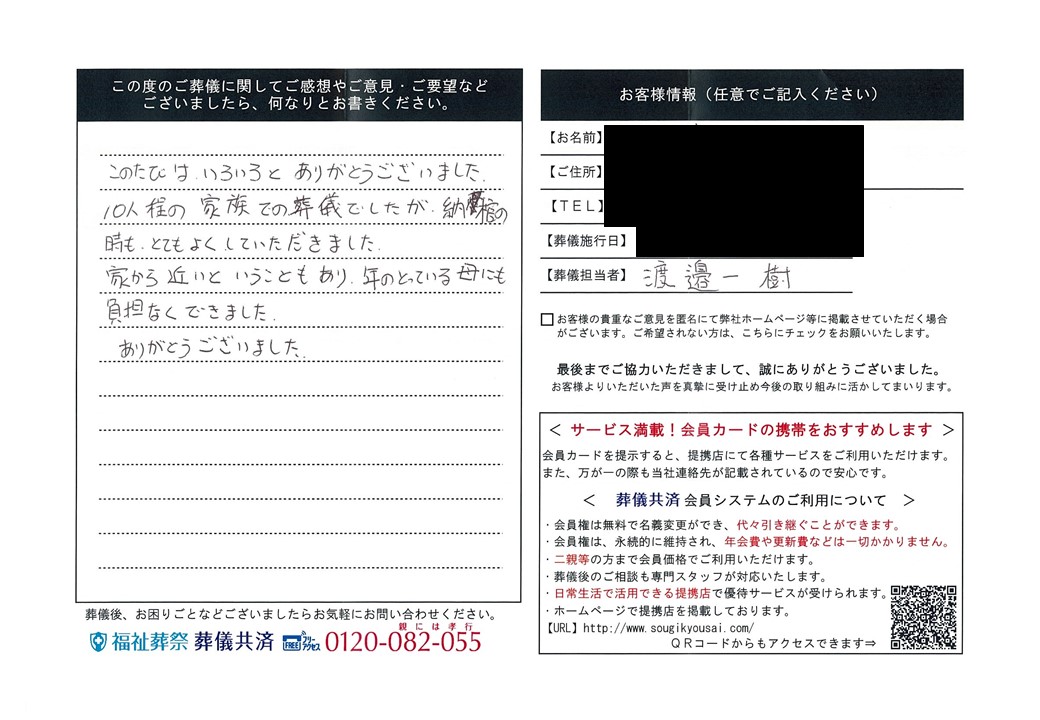 この度のご葬儀に関してご感想やご意見・ご要望など
ございましたら、何なりとお書きください。
このたびは、いろいろと ありがとうございました。
10人程の 家族での葬儀でしたが、納棺の
時も、とてもよくしていただきました。
家から近いと いうこともあり、年のとっている母にも
負担なくできました。
ありがとうございました。
葬儀後、お困りごとなどございましたらお気軽にお問い合わせください。
親には孝行
福祉葬祭 葬儀共済 フリーアクセス FREE 0120-082-055
お客様情報（任意でご記入ください）
【お名前】
【ご住所】
【ＴＥＬ】
【葬儀施行日】
【葬儀担当者】 渡邉一樹
お客様の貴重なご意見を匿名にて弊社ホームページ等に掲載させていただく場合
がございます。ご希望されない方は、こちらにチェックをお願いいたします。
最後までご協力いただきまして、誠にありがとうございました。
お客様よりいただいた声を真摯に受け止め今後の取り組みに活かしてまいります。
＜ サービス満載！会員カードの携帯をおすすめします ＞
会員カードを提示すると、提携店にて各種サービスをご利用いただけます。
また、万が一の際も当社連絡先が記載されているので安心です。
＜ 葬儀共済 会員システムのご利用について ＞
・会員権は無料で名義変更ができ、代々引き継ぐことができます。
・会員権は、永続的に維持され、年会費や更新費などは一切かかりません。
・二親等の方まで会員価格でご利用いただけます。
・葬儀後のご相談も専門スタッフが対応いたします。
・日常生活で活用できる提携店で優待サービスが受けられます。
・ホームページで提携店を掲載しております。
【URL】http://www.sougikyousai.com/
ＱＲコードからもアクセスできます⇒